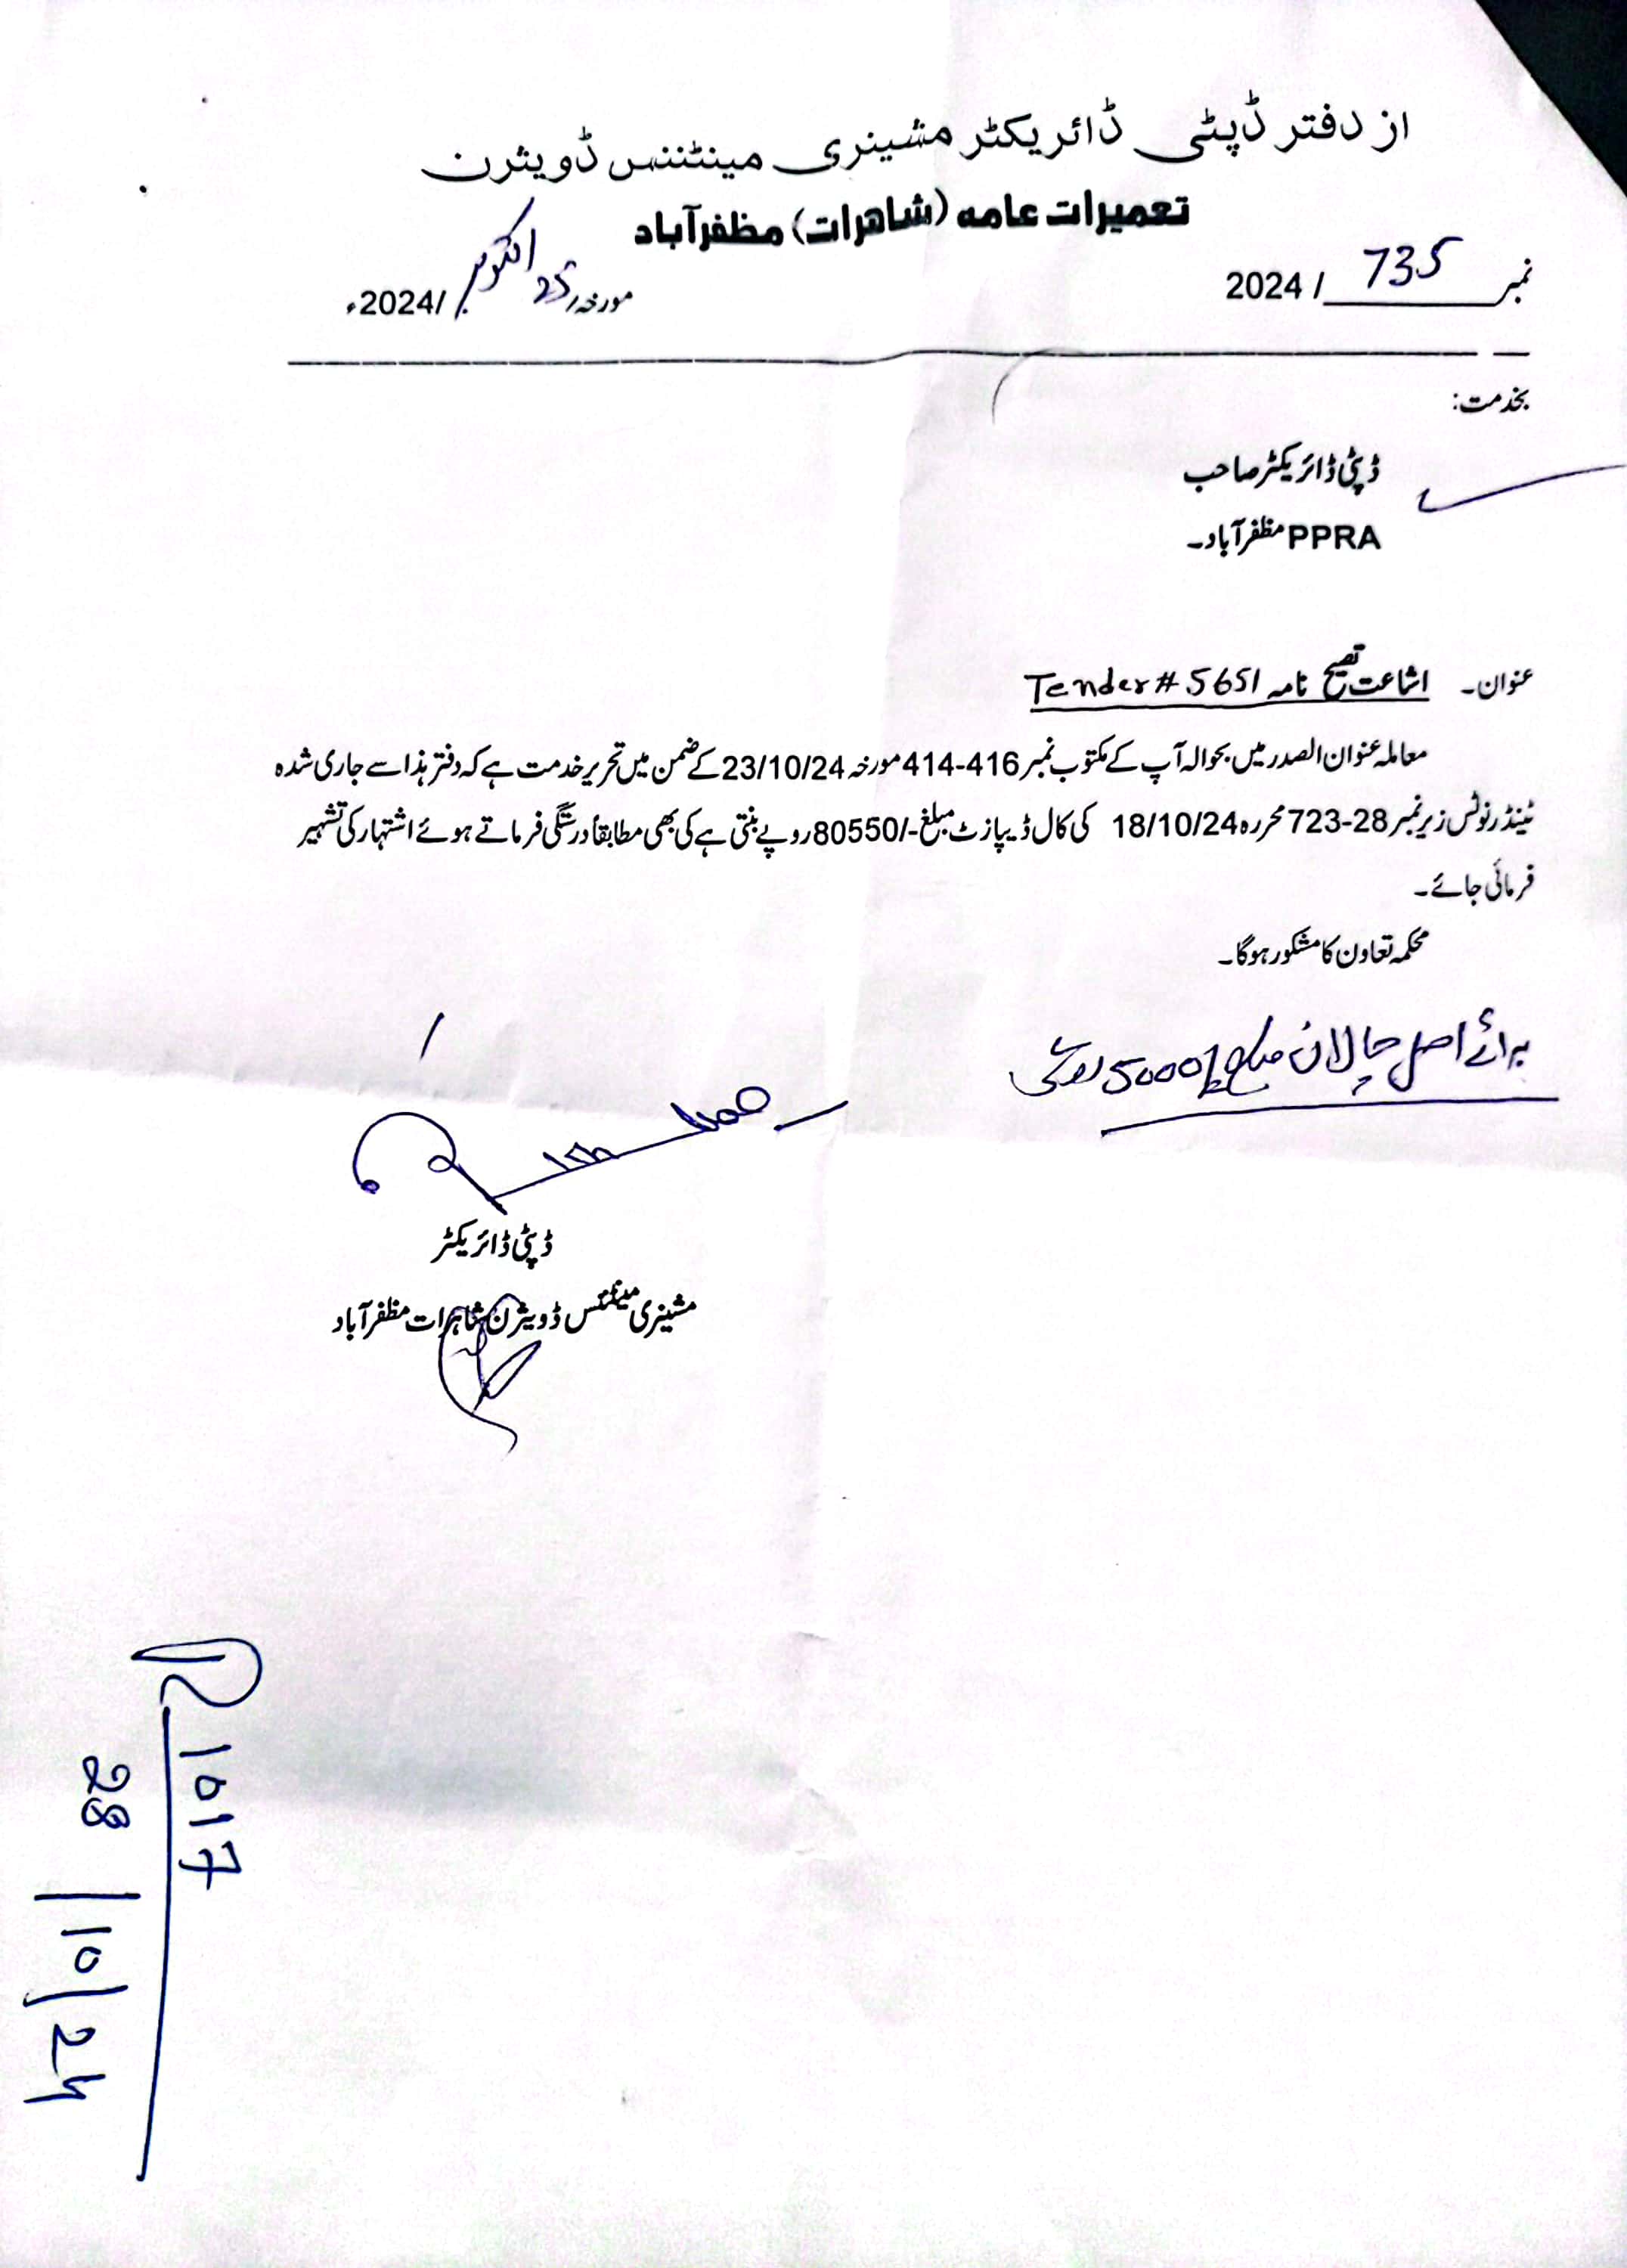 از دفتر ڈپٹی ڈائریکٹر مشینری مینٹننس ڈویثرن
تعمیرات عامہ (شاھرات) مظفرآباد
نمبر 735 / 2024
مورخہ 25 اکتوبر /2024ء
بخدمت:
ڈپٹی ڈائریکٹر صاحب
PPRA مظفرآباد۔
عنوان۔ اشاعت تصیح نامہ Tender # 5651
معاملہ عنوان الصدر میں بحوالہ آپ کے مکتوب نمبر 414-416 مورخہ 23/10/24 کے ضمن میں تحریر خدمت ہے کہ دفتر ہذا سے جاری شدہ
ٹینڈر نوٹس زیر نمبر 723-28 محررہ 18/10/24 کی کال ڈیپازٹ مبلغ -/80550 روپے بنتی ہے کی بھی مطابقاً درستگی فرماتے ہوئے اشتہار کی تشہیر
فرمائی جائے۔
محکمہ تعاون کا مشکور ہوگا۔
برائے اصل چالان مبلغ 5000/
ڈپٹی ڈائریکٹر
مشینری مینٹننس ڈویثرن شاہرات مظفرآباد
1017
28/10/24